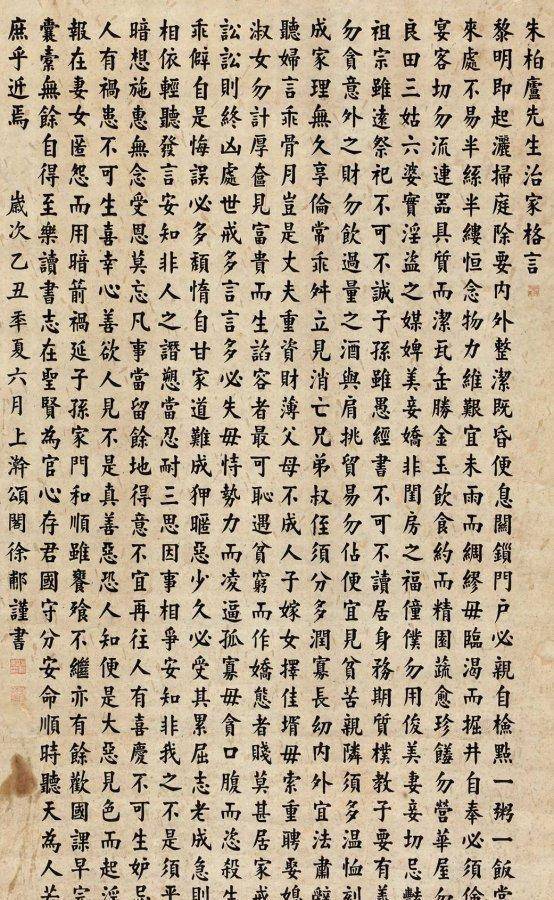 朱柏廬先生治家格言
黎明即起灑掃庭除要内外整潔既昏便息關鎖門户必親自檢點一粥一飯當
來處不易半絲半縷恒念物力維艱宜未雨而綢繆毋臨渴而掘井自奉必須儉
宴客切勿流連器具質而潔瓦缶勝金玉飲食約而精園蔬愈珍饈勿營華屋勿
良田三姑六婆實淫盜之媒婢美妾嬌非閨房之福僮僕勿用俊美妻妾切忌艷
祖宗雖遠祭祀不可不誠子孫雖愚經書不可不讀居身務期質樸教子要有義
勿貪意外之財勿飲過量之酒與肩挑貿易勿佔便宜見貧苦親隣須多温恤刻
成家理無久享倫常乖舛立見消亡兄弟叔侄須分多潤寡長幼内外宜法肅辭
聽婦言乖骨月豈是丈夫重資財薄父母不成人子嫁女擇佳壻毋索重聘娶媳
淑女勿計厚奩見富貴而生諂容者最可恥遇貧窮而作嬌態者賤莫甚居家戒
訟訟則終凶處世戒多言言多必失毋恃勢力而凌逼孤寡毋貪口腹而恣殺生
乖僻自是悔誤必多頹惰自甘家道難成狎暱惡少久必受其累屈志老成急則
相依輕聽發言安知非人之譖愬當忍耐三思因事相爭安知非我之不是須平
暗想施惠無念受恩莫忘凡事當留餘地得意不宜再往人有喜慶不可生妒忌
人有禍患不可生喜幸心善欲人見不是真善惡恐人知便是大惡見色而起淫
報在妻女匿怨而用暗箭禍延子孫家門和順雖饔飧不繼亦有餘歡國課早完
囊橐無餘自得至樂讀書志在聖賢為官心存君國守分安命順時聽天為人若
庶乎近焉 歲次乙丑季夏六月上澣頌閣徐郙謹書